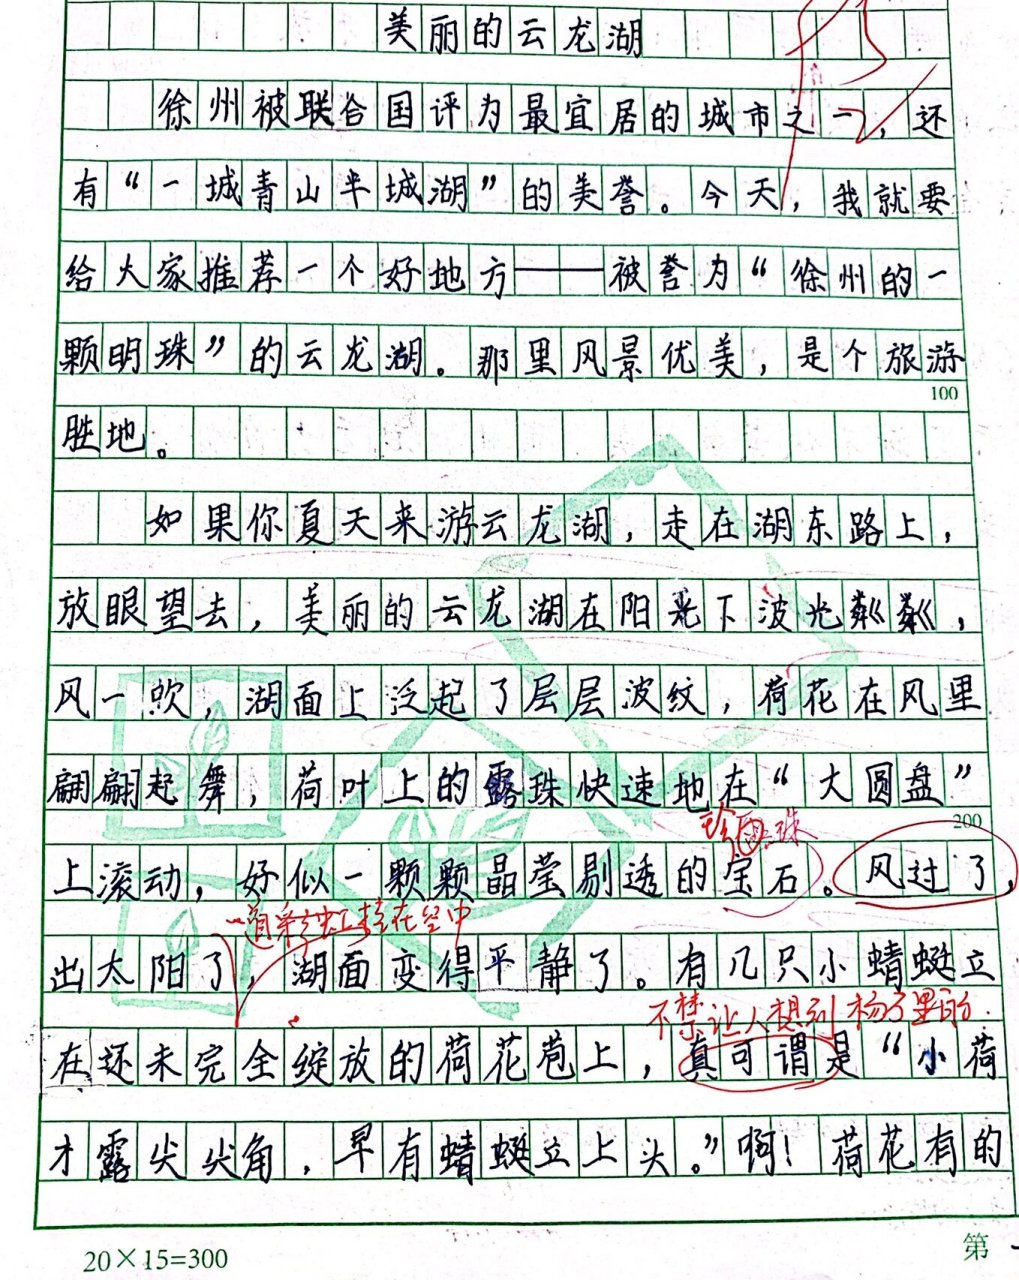 美丽的云龙湖
徐州被联合国评为最宜居的城市之一，还
有“一城青山半城湖”的美誉。今天，我就要
给大家推荐一个好地方——被誉为“徐州的一
颗明珠”的云龙湖。那里风景优美，是个旅游
100
胜地。
如果你夏天来游云龙湖，走在湖东路上，
放眼望去，美丽的云龙湖在阳光下波光粼粼，
风一吹，湖面上泛起了层层波纹，荷花在风里
翩翩起舞，荷叶上的露珠快速地在“大圆盘”
200
珍珠
上滚动，好似一颗颗晶莹剔透的宝石。风过了，
一道彩虹挂在空中
出太阳了，湖面变得平静了。有几只小蜻蜓立
不禁让人想到杨万里的
在还未完全绽放的荷花苞上，真可谓是“小荷
才露尖尖角，早有蜻蜓立上头。”啊！荷花有的
20×15=300
第